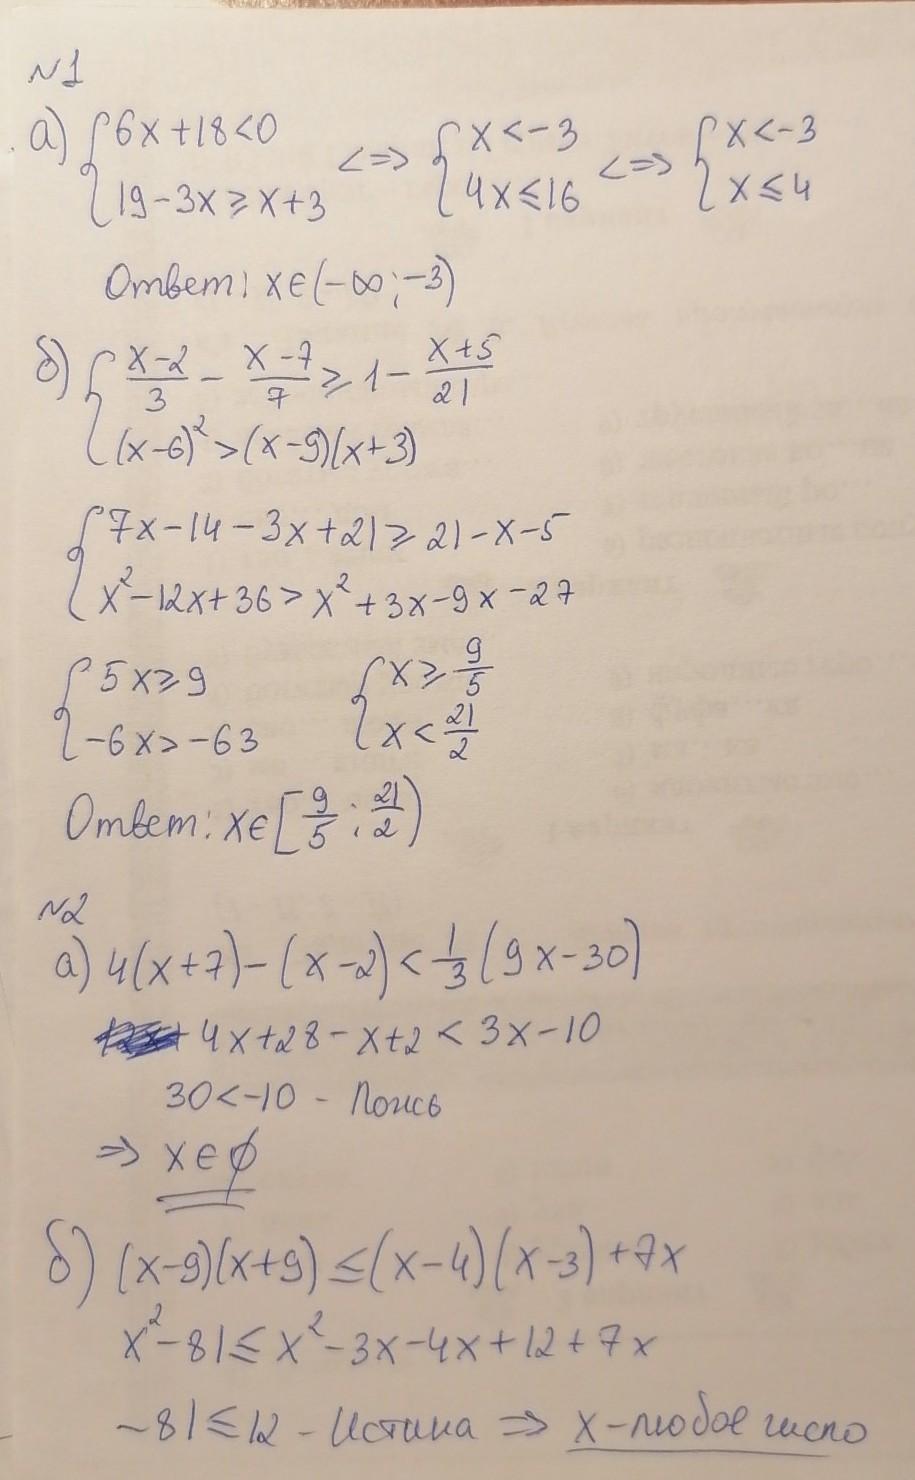 №1
а) {6x+18<0 <=> {x<-3 <=> {x<-3
{19-3x≥x+3 {4x≤16 {x≤4
Ответ: x∈(-∞;-3)
б) {(x-2)/3 - (x-7)/7 ≥ 1 - (x+5)/21
{(x-6)²>(x-9)(x+3)
{7x-14-3x+21≥21-x-5
{x²-12x+36>x²+3x-9x-27
{5x≥9 {x≥9/5
{-6x>-63 {x<21/2
Ответ: x∈[9/5;21/2)
№2
а) 4(x+7)-(x-2)<1/3(9x-30)
4x+28-x+2<3x-10
30<-10 -
=> x∈∅
б) (x-9)(x+9)≤(x-4)(x-3)+7x
x²-81≤x²-3x-4x+12+7x
-81≤12 - Истина => x-любое число